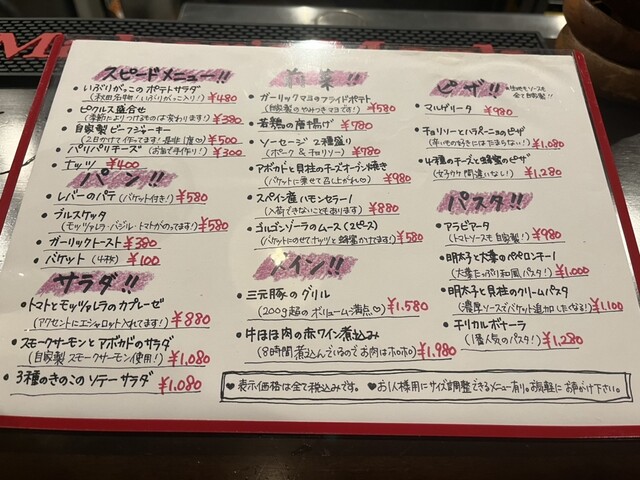 スピードメニュー!!
・いぶりがっこのポテトサラダ
(秋田名物!いぶりがっこ入り!) ¥480
・ピクルス盛合せ
(季節によりつけるものは変わります!) ¥380
・自家製ビーフジャーキー
(2日かけて作ってます!是非1度♡) ¥500
・パリパリチーズ(お店で手作り!) ¥300
・ナッツ ¥400
パン!!
・レバーのパテ(バケット付き!) ¥580
・ブルスケッタ
(モッツァレラ・バジル・トマトがのってます!) ¥580
・ガーリックトースト ¥380
・バケット(4枚) ¥100
サラダ!!
・トマトとモッツァレラのカプレーゼ
(アクセントにエシャロット入れてます!) ¥880
・スモークサーモンとアボカドのサラダ
(自家製スモークサーモン使用!) ¥1,080
・3種のきのこソテーサラダ ¥1,080
前菜!!
・ガーリックマヨのフライドポテト
(自家製のやみつきマヨです!) ¥580
・若鶏の唐揚げ ¥780
・ソーセージ2種盛り
(ポーク&チョリソー) ¥980
・アボカドと貝柱のチーズオーブン焼き
(バケットに乗せて召し上がれ♡) ¥980
・スペイン産ハモンセラーノ
(入荷できないこともあります!) ¥880
・ゴルゴンゾーラのムース(2ピース)
(バケットにのせてナッツと蜂蜜かけてます!) ¥580
メイン!!
・三元豚のグリル
(200g超のボリューム満点♡) ¥1,580
・牛ほほ肉の赤ワイン煮込み
(8時間煮込んでいるのでお肉はホロホロ) ¥1,980
ピザ!!
・生地もソースも全て自家製!!
・マルゲリータ ¥980
・チョリソーとハラペーニョのピザ
(辛いもの好きにはたまらない!) ¥1,080
・4種のチーズと蜂蜜のピザ
(女子ウケ間違いない!) ¥1,280
パスタ!!
・アラビアータ
(トマトソースも自家製!) ¥980
・明太子と大葉のペペロンチーノ
(大葉たっぷり和風パスタ) ¥1,000
・明太子と貝柱のクリームパスタ
(濃厚ソースでバケット追加したくなる!) ¥1,100
・チリカルボナーラ
(1番人気のパスタ!) ¥1,280
♥表示価格は全て税込みです。 ♥お1人様用にサイズ調整できるメニュー有り。お気軽にお声がけ下さい。